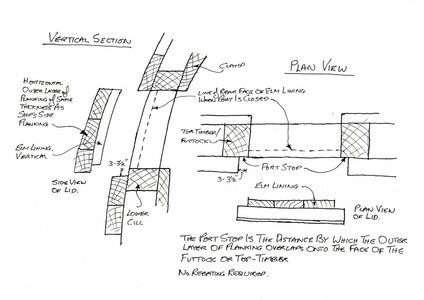 VERTICAL SECTION
CLAMP
PLAN VIEW
HORIZONTAL
OUTER LAYER OF
PLANKING OF SAME
THICKNESS AS
SHIP'S SIDE
PLANKING
LINE OF REAR FACE OF ELM LINING
WHEN PORT IS CLOSED
TOP TIMBER/
FUTTOCK
ELM LINING,
VERTICAL
3-3½"
PORT STOP
3-3½"
SIDE VIEW
OF LID.
LOWER
CILL
ELM LINING
PLAN VIEW
OF LID.
THE PORT STOP IS THE DISTANCE BY WHICH THE OUTER
LAYER OF PLANKING OVERLAPS ONTO THE FACE OF THE
FUTTOCK OR TOP-TIMBER
NO REBATING REQUIRED.